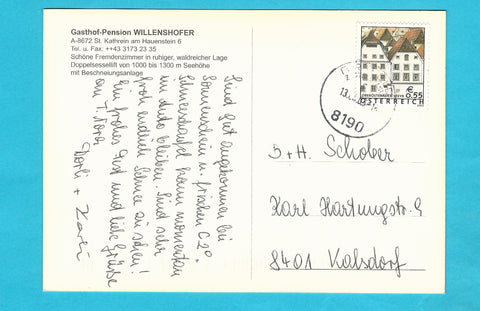 Gasthof-Pension WILLENSHOFER
A-8672 St. Kathrein am Hauenstein 6
Tel u. Fax: ++43 3173 23 35
Schöne Fremdenzimmer in ruhiger, waldreicher Lage
Doppelsessellift von 1000 bis 1300 m Seehöhe
mit Beschneiungsanlage
Sind gut angekommen bei
Sonnenschein u. frischen C 2°.
Schneeschaufel kann momentan
im Auto bleiben. Sind sehr
froh endlich Schnee zu sehen!
Ein frohes Fest und liebe Grüße
an
Dorli + Karli
€
0.55
ÖSTERREICH
13.
8190
S+H. Schober
Karl Hartungstr. 9
8401 Kalsdorf